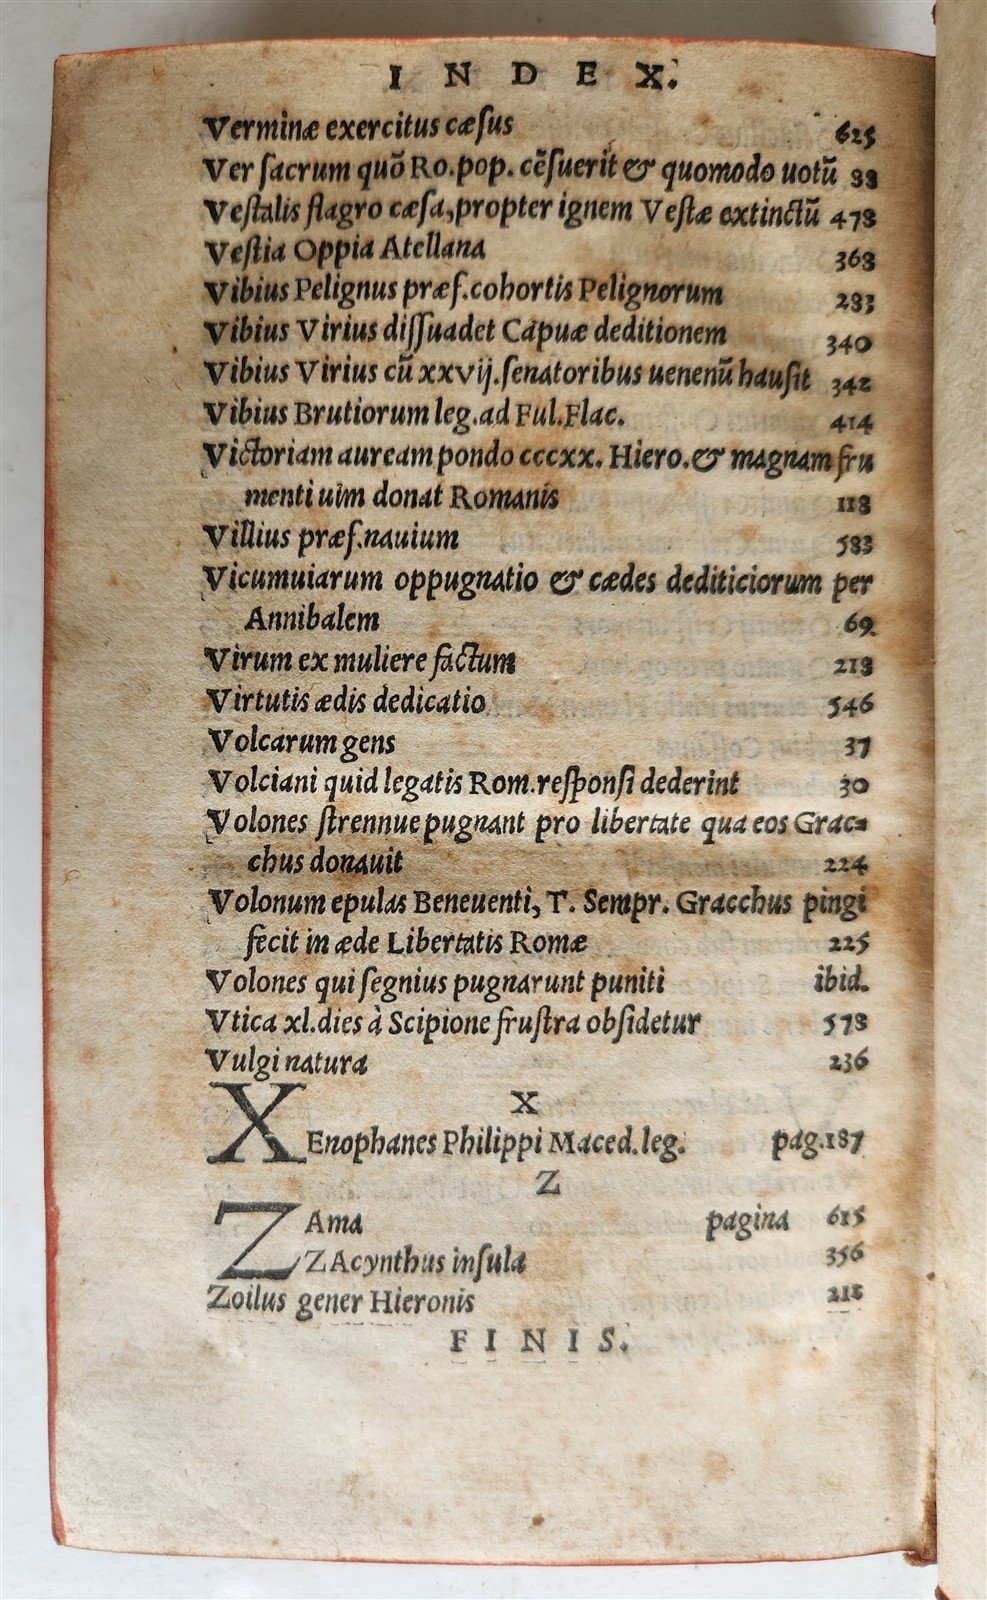 INDEX.
Verminæ exercitus cæſus 625
Ver ſacrum quõ Ro.pop. cẽſuerit & quomodo uotũ 88
Veſtalis flagro cæſa, propter ignem Veſtæ extinctũ 478
Veſtia Oppia Atellana 368
Vibius Pelignus præf.cohortis Pelignorum 283
Vibius Virius diſſuadet Capuæ deditionem 340
Vibius Virius cũ xxvij.ſenatoribus uenenũ hauſit 342
Vibius Brutiorum leg.ad Ful.Flac. 414
Victoriam auream pondo cccxx. Hiero.& magnam fru
menti uim donat Romanis 118
Villius præf.nauium 583
Vicumuiarum oppugnatio & cædes dediticiorum per
Annibalem 69.
Virum ex muliere factum 218
Virtutis ædis dedicatio 546
Volcarum gens 37
Volciani quid legatis Rom.reſponſi dederint 30
Volones ſtrennue pugnant pro libertate qua eos Grac=
chus donauit 224
Volonum epulas Beneuenti, T. Sempr. Gracchus pingi
fecit in æde Libertatis Romæ 225
Volones qui ſegnius pugnarunt puniti ibid.
Vtica xl.dies à Scipione fruſtra obſidetur 578
Vulgi natura 236
X
XEnophanes Philippi Maced.leg. pag.187
Z
ZAma pagina 615
ZAcynthus inſula 356
Zoilus gener Hieronis 218
FINIS.